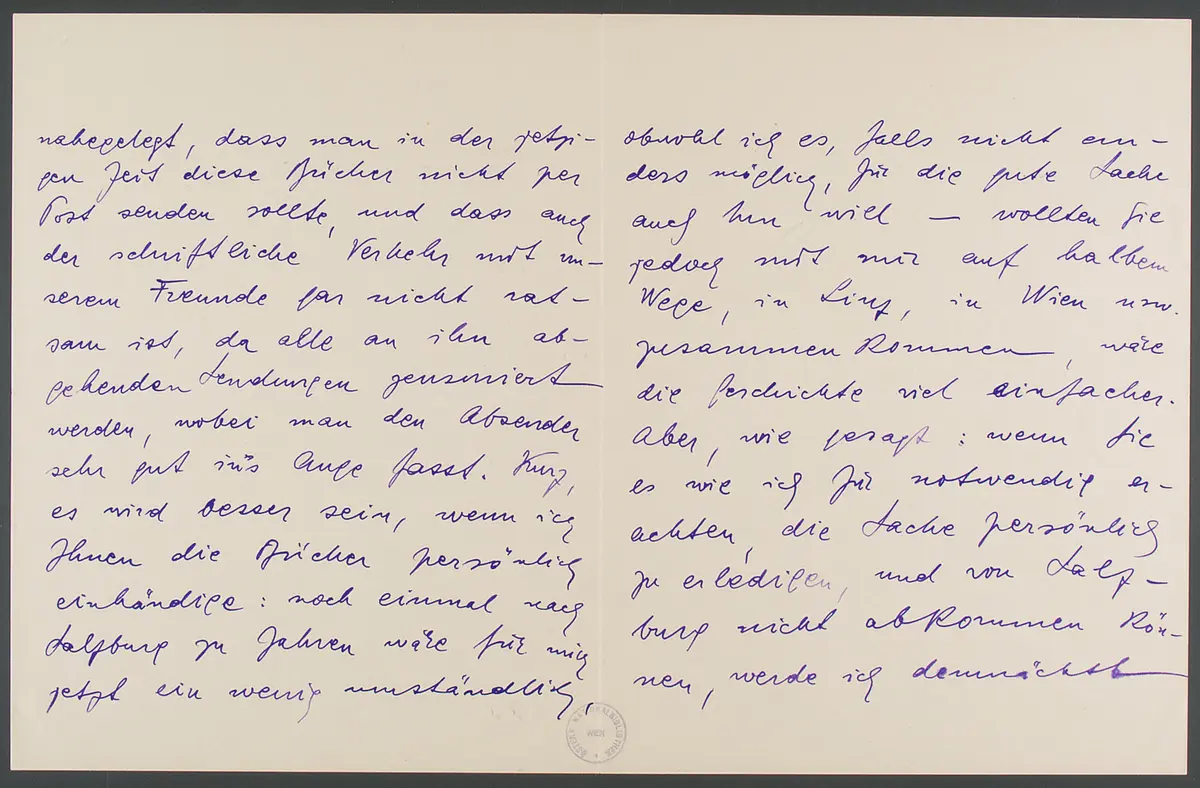 nahegelegt, dass man in der jetzi-
gen Zeit diese Bücher nicht per
Post senden sollte, und dass auch
der schriftliche Verkehr mit un-
serem Freunde gar nicht rat-
sam ist, da alle an ihn ab-
gehenden Sendungen zensuriert
werden, wobei man den Absender
sehr gut in's Auge fasst. Kurz,
es wird besser sein, wenn ich
Ihnen die Bücher persönlich
einhändige: noch einmal nach
Salzburg zu fahren wäre für mich
jetzt ein wenig umständlich,
obwohl ich es, falls nicht an-
ders möglich, für die gute Sache
auch tun will — wollten Sie
jedoch mit mir auf halbem
Wege, in Linz, in Wien usw.
zusammenkommen, wäre
die Geschichte viel einfacher.
Aber, wie gesagt: wenn Sie
es wie ich für notwendig er-
achten, die Sache persönlich
zu erledigen, und von Salz-
burg nicht abkommen kön-
nen, werde ich demnächst
ÖSTERR. NATIONALBIBLIOTHEK
WIEN